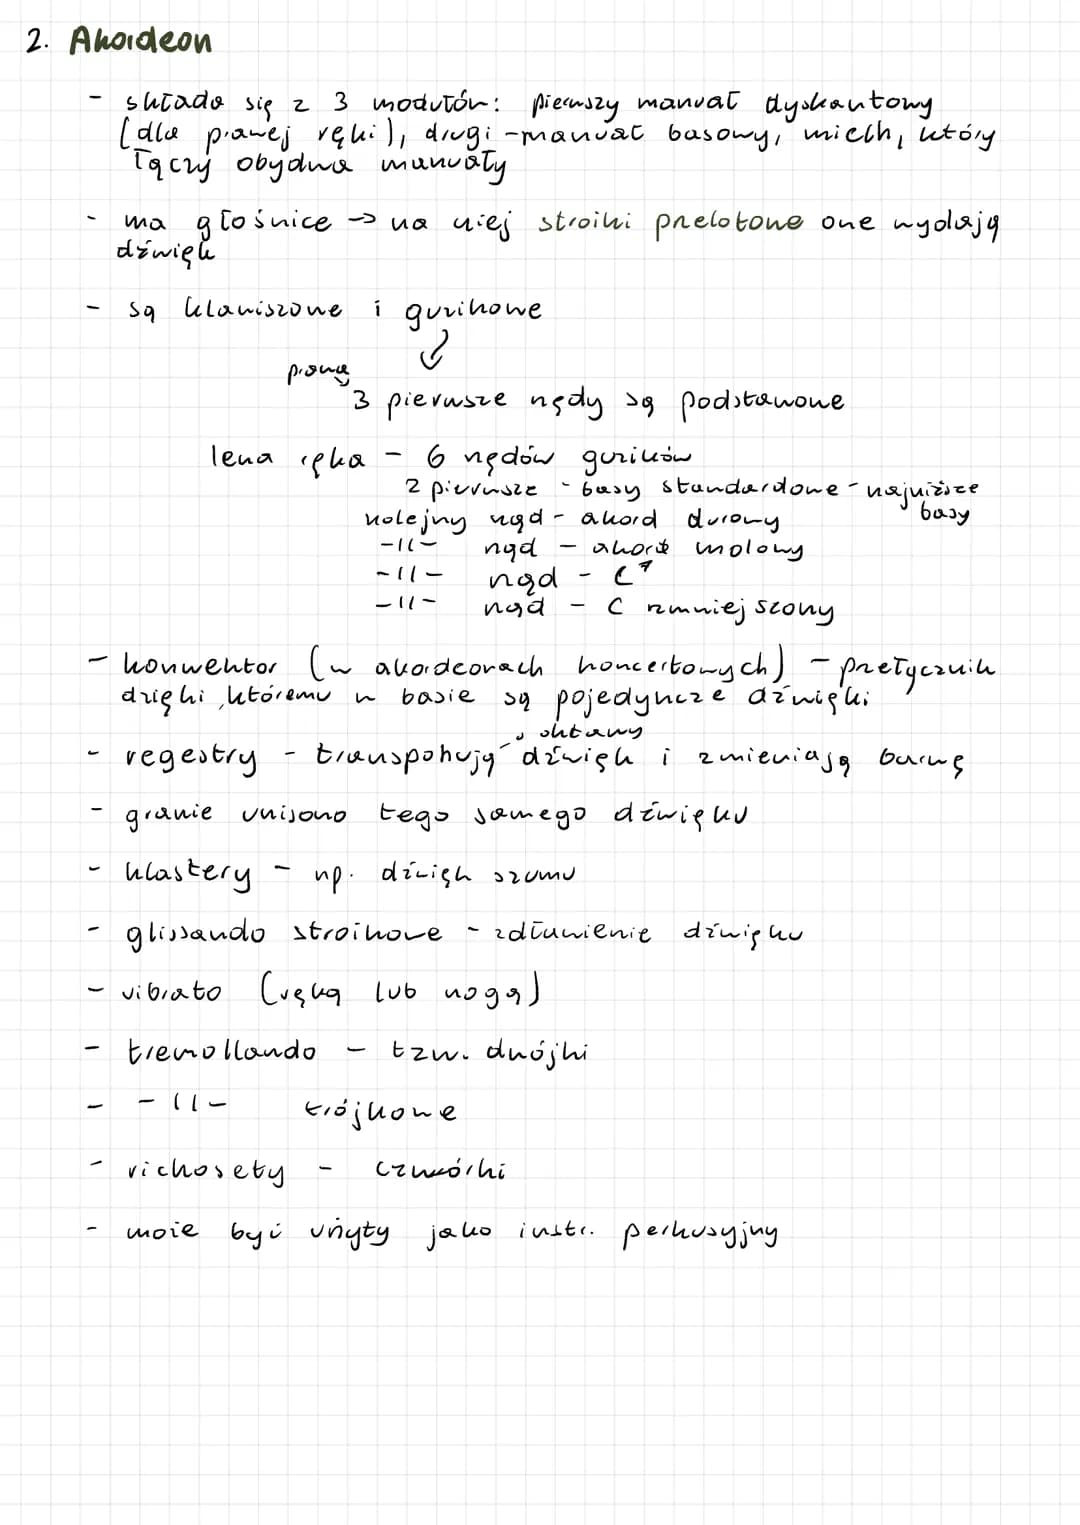 2. Akordeon
- składa się z 3 modułów: pierwszy manuał dyskantowy
(dla prawej ręki), drugi - manuał basowy, miech, który
łączy obydwa manuały
- ma głośnice → na niej stroiki przelotowe one wydają
dźwięk
- są klawiszowe i guzikowe
prawa
3 pierwsze rzędy są podstawowe
lewa ręka - 6 rzędów guzików
2 pierwsze - basy standardowe - najniższe
basy
kolejny rząd - akord durowy
-||- rząd - akord molowy
-||- rząd - C⁷
-||- rząd - C zmniejszony
- konwektor (w akordeonach koncertowych) - przełącznik
dzięki któremu w basie są pojedyncze dźwięki
oktawy
- regestry - transponują dźwięk i zmieniają barwę
- granie unisono tego samego dźwięku
- klastery - np. dźwięk szumu
- glissando stroikowe - zdławienie dźwięku
- vibrato (ręką lub nogą)
- tremollando - tzw. dwójki
- -||- trójkowe
- richosety - czwórki
- może być użyty jako instr. perkusyjny